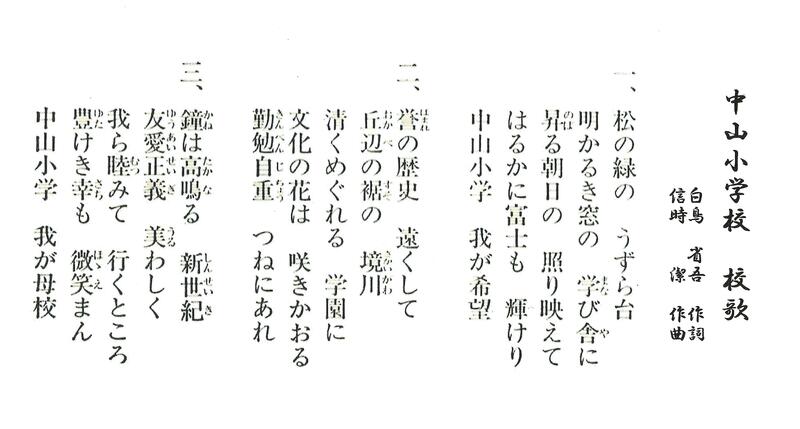 中山小学校 校歌
白鳥 省吾 作詞
信時 潔 作曲
一、松の緑の うずら台
明かるき窓の 学び舎に
昇る朝日の 照り映えて
はるかに富士も 輝けり
中山小学 我が希望
二、誉の歴史 遠くして
丘辺の裾の 境川
清くめぐれる 学園に
文化の花は 咲きかおる
勤勉自重 つねにあれ
三、鐘は高鳴る 新世紀
友愛正義 美わしく
我ら睦みて 行くところ
豊けき幸も 微笑まん
中山小学 我が母校